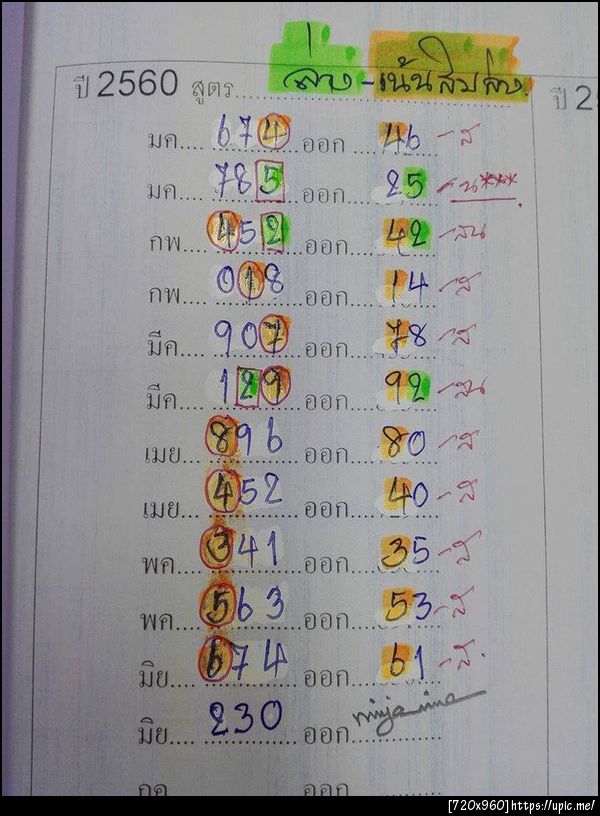 ล่าง - เน้นสิบล่าง
ปี 2560 สูตร.................... ปี 2
มค.... 674 ออก.... 46 - ส
มค.... 785 ออก.... 25 - น***
กพ.... 452 ออก.... 42 - สน
กพ.... 018 ออก.... 14 - ส
มีค.... 907 ออก.... 78 - ส
มีค.... 129 ออก.... 92 - สน
เมย.... 896 ออก.... 80 - ส
เมย.... 452 ออก.... 40 - ส
พค.... 341 ออก.... 35 - ส
พค.... 563 ออก.... 53 - ส
มิย.... 674 ออก.... 61 - ส.
มิย.... 230 ออก....
กค.... ออก....
[720x960] https://upic.me/